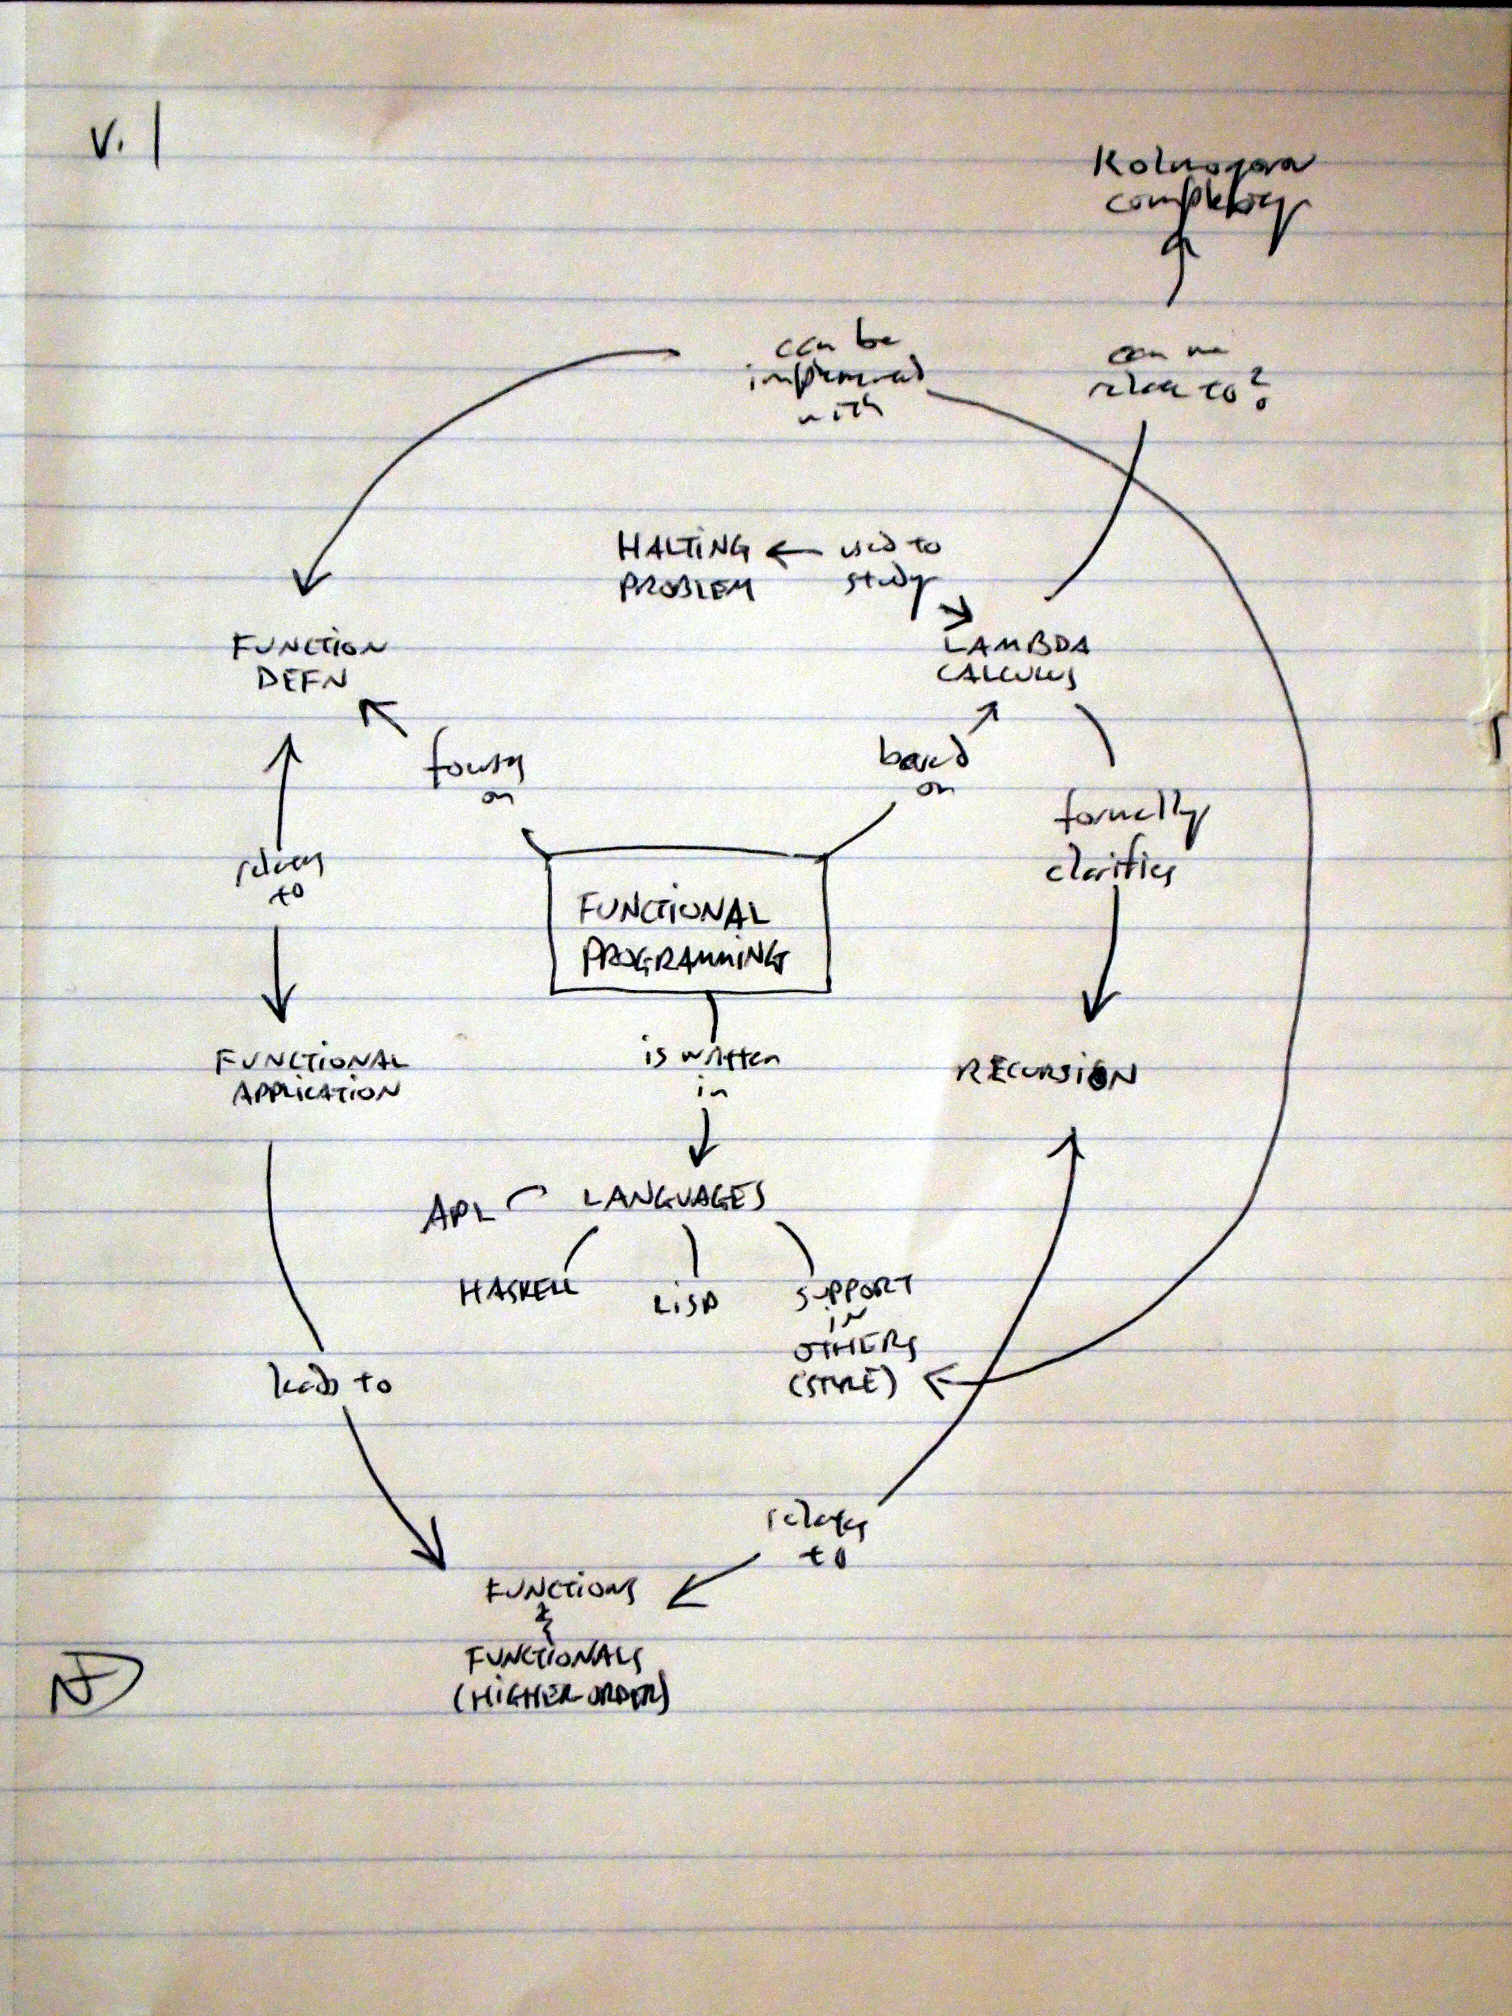 V. 1
Kolmogorov
complexity
can be
implemented
with
can we
relate to?
HALTING
PROBLEM
used to
study
FUNCTION
DEFN
LAMBDA
CALCULUS
focuses
on
based
on
formally
clarifies
relates
to
FUNCTIONAL
PROGRAMMING
FUNCTIONAL
APPLICATION
is written
in
RECURSION
APL
LANGUAGES
HASKELL
LISP
SUPPORT
in
OTHERS
(STYLE)
leads to
relates
to
FUNCTIONS
&
FUNCTIONALS
(HIGHER ORDER)